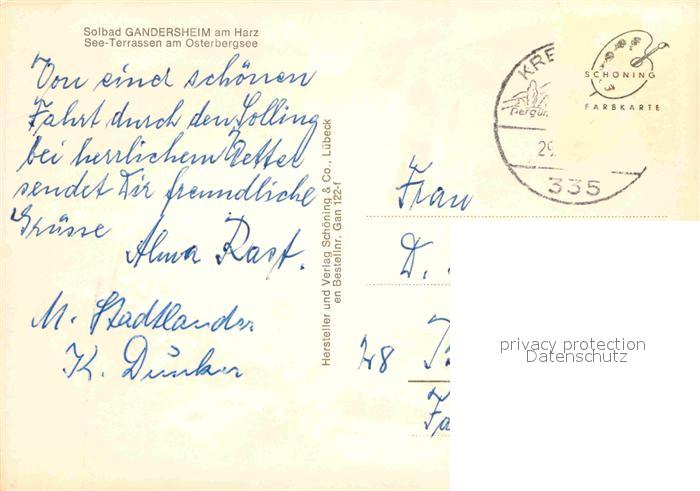 Solbad GANDERSHEIM am Harz
See-Terrassen am Osterbergsee
Von einer schönen
Fahrt durch den Solling
bei herrlichem Wetter
sendet Dir freundliche
Grüsse
Alma Rast.
M. Stadtlander
K. Dunker
Hersteller und Verlag Schöning & Co., Lübeck
en Bestellnr. Gan 122-f
KRE
29.
335
SCHÖNING
FARBKARTE
Frau
D.
28
privacy protection
Datenschutz